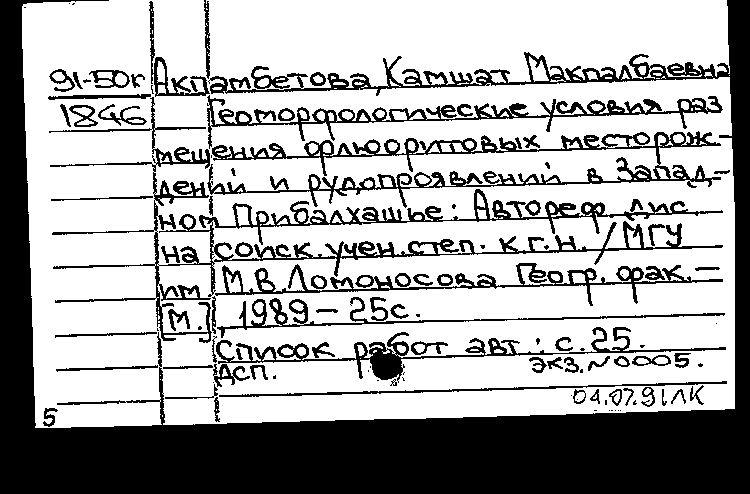 91-50к Акпамбетова, Камшат Макпалбаевна
1846 Геоморфологические условия раз
мещения флюоритовых месторож-
дений и рудопроявлений в Запад-
ном Прибалхашье: Автореф дис
на соиск. учен. степ. к.г.н. / МГУ
им. М.В.Ломоносова Геогр. фак. -
[М.], 1989. - 25с.
Список работ авт : с. 25.
ДСП. экз. N 0005.
04.07.91ЛК
5